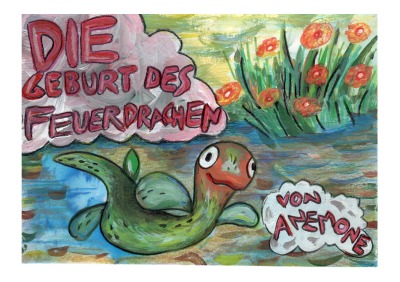 DIE
GEBURT DES
FEUERDRACHEN
VON
ANEMONE